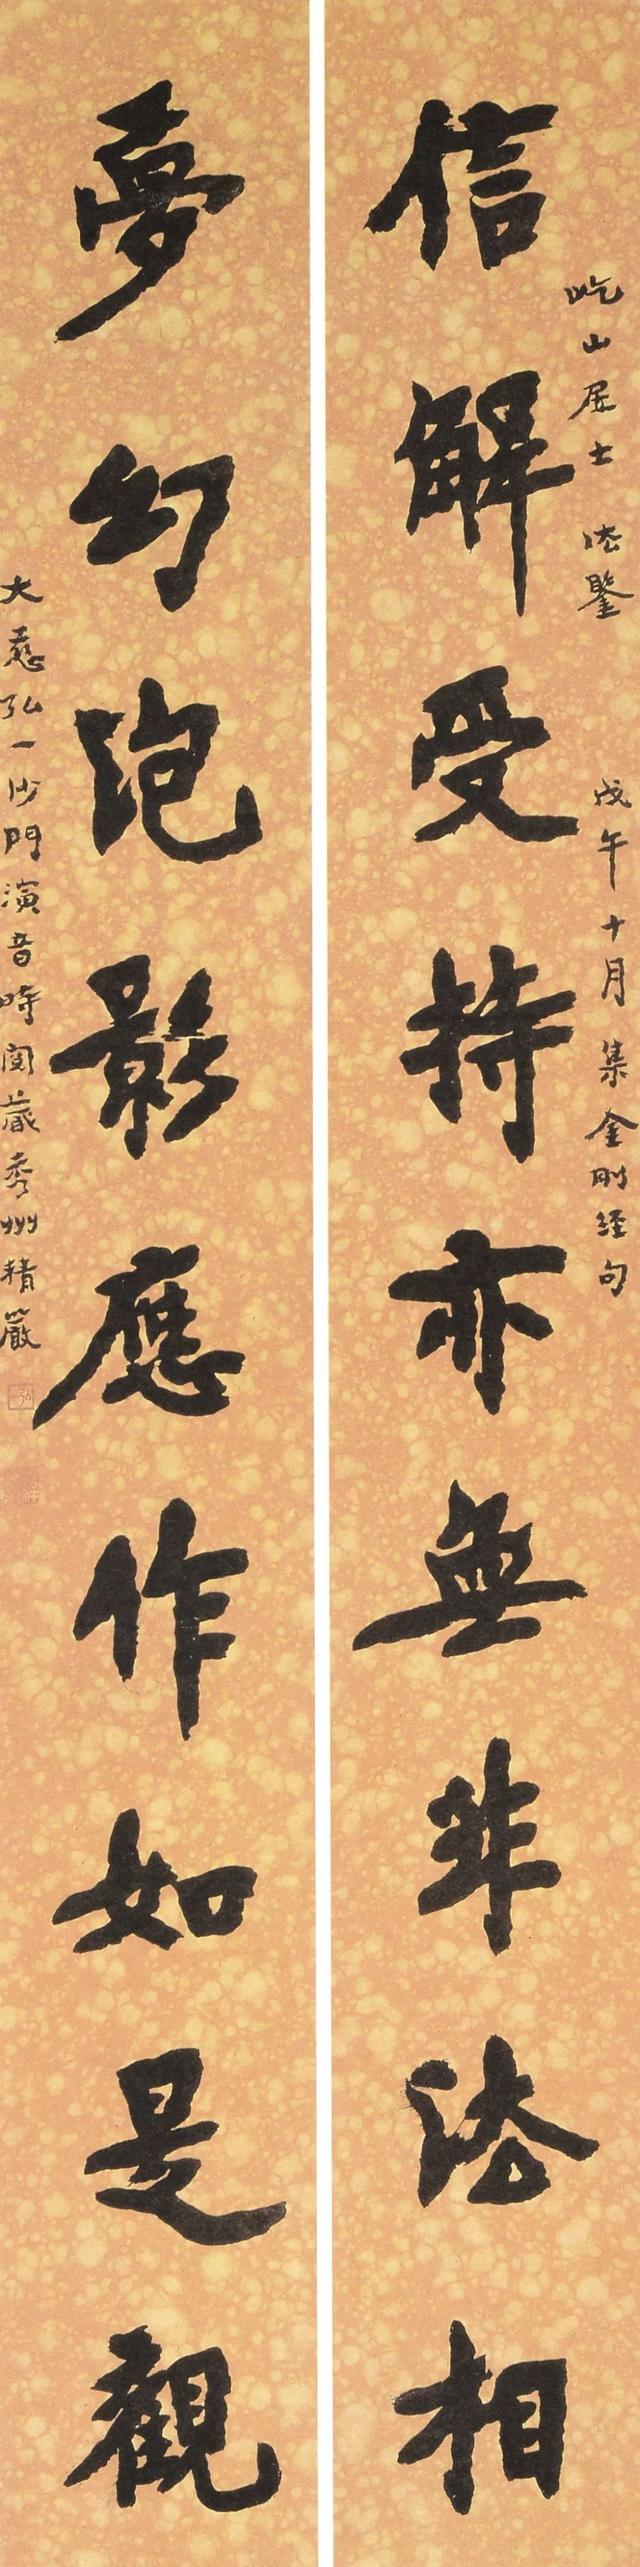 信解受持亦無非法相
屹山居士 法鑒
戊午十月集金剛經句
夢幻泡影應作如是觀
大慈弘一沙門演音時閱藏秀州精嚴